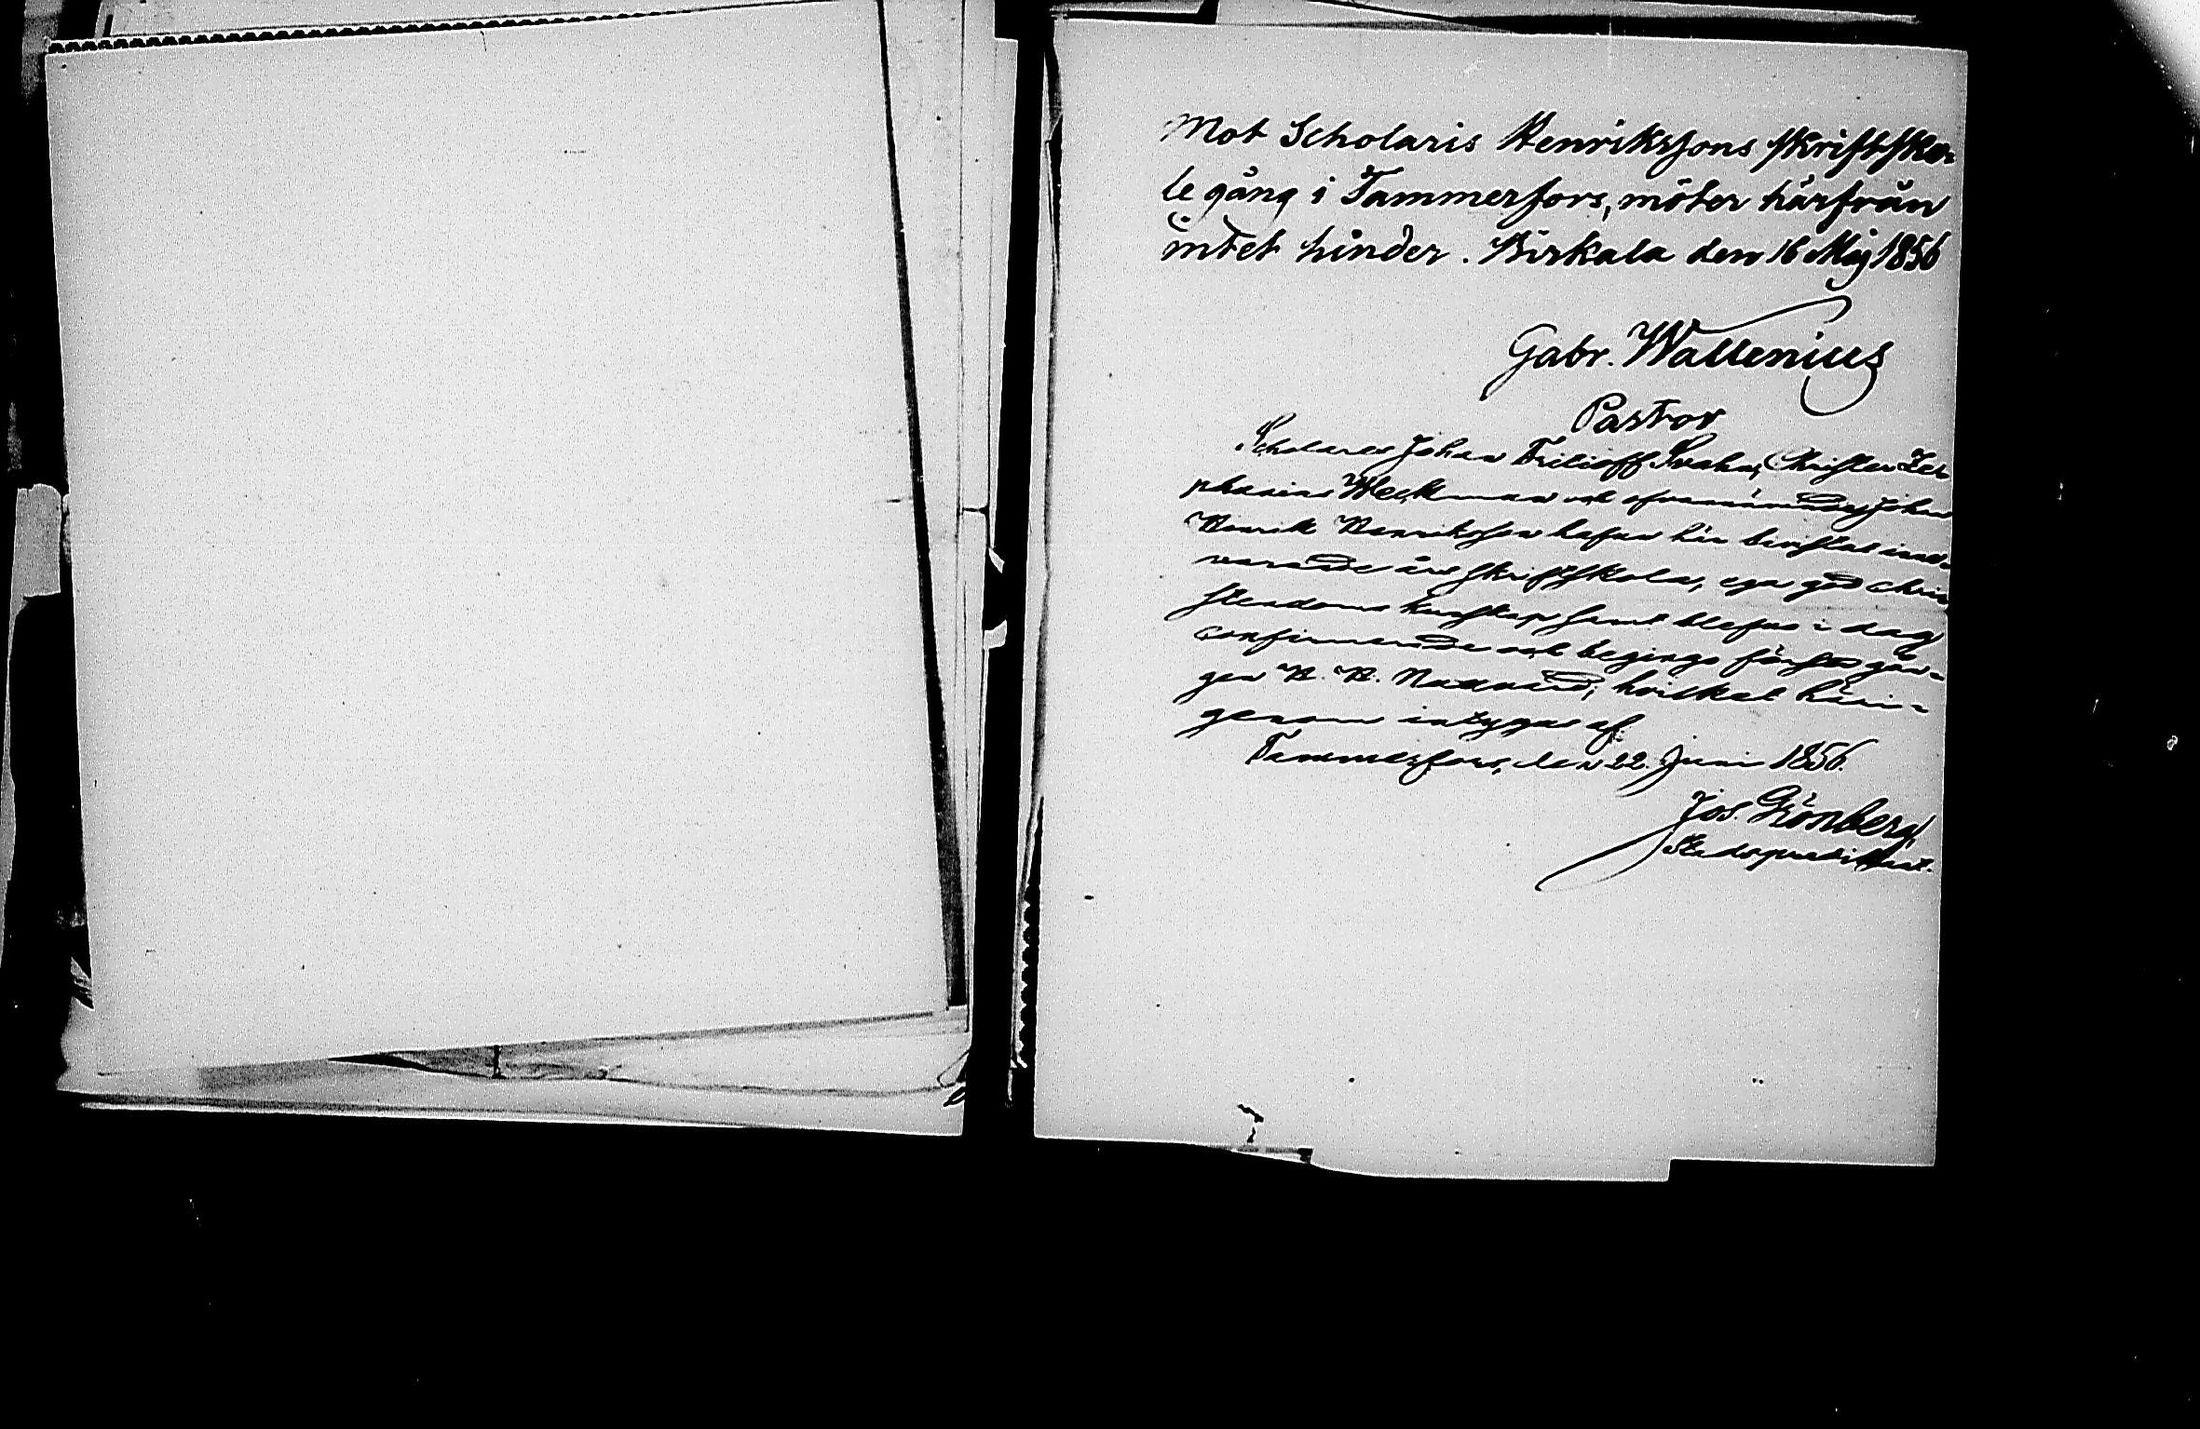 Mot Scholaris Henrikssons skriftsko-
le gång i Tammerfors, möter härifrån
intet hinder. Birkala den 16 Maj 1856
Gabr. Wallenius
Pastor
Scholares Johan Svahn, Christer Zep-
phanias Weckman och ofvannämnde Johan
Henrik Henriksson hafva här bevistat inne-
varande års skriftskola, ega god chri-
stendoms kunskap samt blefvo i dag
confirmerade och begingo första gån-
gen H. H. Nattvard; hvilket häri-
genom intygas af
Tammerfors, den 22. Juni 1856.
Jos. Grönberg
Stadspredikant.